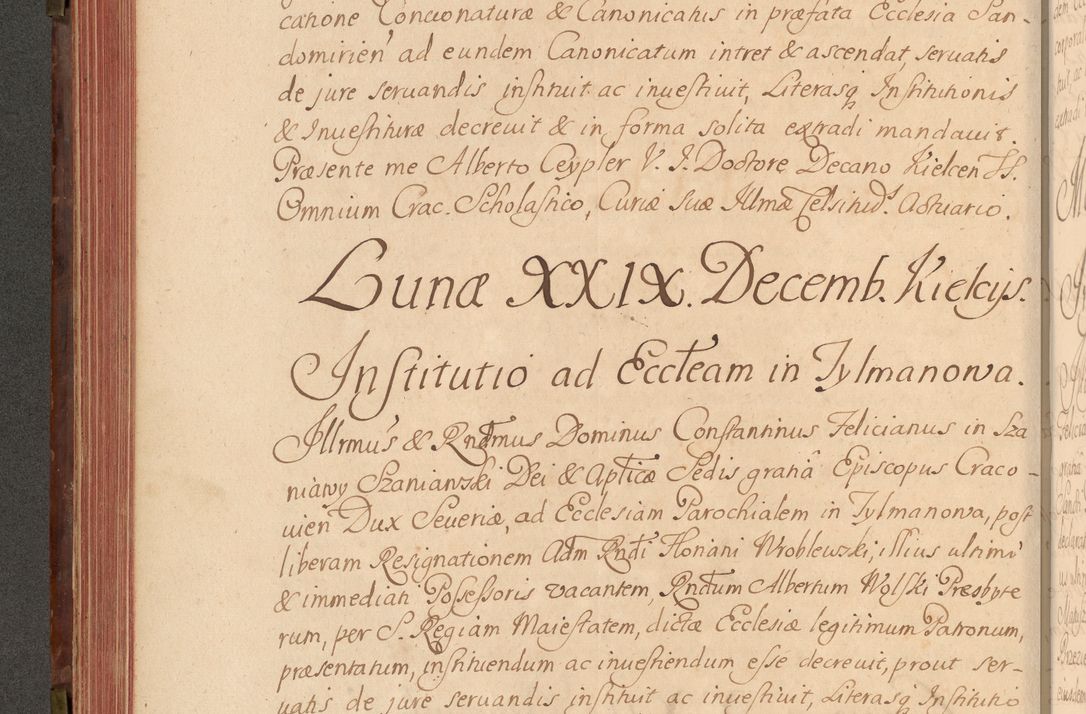 catione Concionaturæ & Canonicatus in præfata Ecclesia San-
domirien̄ ad eundem Canonicatum intret & ascendat, servatis
de jure servandis instituit ac investivit, Literasq Institutionis
& Investituræ decrevit & in forma solita extradi mandavit.
Præsente me Alberto Ceypler V. J. Doctore Decano Kielcen SS.
Omnium Crac. Scholastico, Curiæ suæ Illmæ Celsitud̄s. Actuario.
Lunæ XXIX. Decemb. Kielcijs.
Institutio ad Eccl̄eam in Tylmanowa.
Illrmus & Rndmus Dominus Constantinus Felicianus in Sza
niawy Szaniawski Dei & Apticæ Sedis gratiâ Episcopus Craco-
vien Dux Severiæ, ad Ecclesiam Parochialem in Tylmanowa, post
liberam Resignationem Adm Rndi Floriani Wroblewski, illius ultimi
& immediati Possessoris vacantem, Rndum Albertum Wolski Presbyte
rum, per S. Regiam Maiestatem, dictæ Ecclesiæ legitimum Patronum,
præsentatum, instituendum ac investiendum esse decrevit, prout ser-
vatis de jure servandis instituit ac investivit, Literasq Institutio